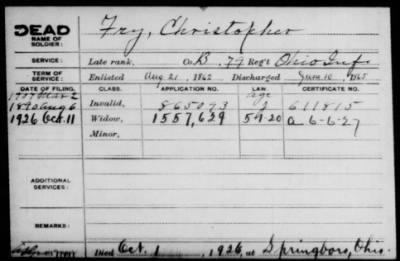 DEAD Fry, Christopher
NAME OF SOLDIER:
SERVICE: Late rank, Co. B, 79 Reg't Ohio Inf.
TERM OF SERVICE: Enlisted Aug 21, 1862 Discharged June 10, 1865
DATE OF FILING. CLASS. APPLICATION NO. LAW. CERTIFICATE NO.
1907 Mar 2 age
1890 Aug 6 Invalid, 865073 2 611815
1926 Oct. 11 Widow, 1557,629 5-1-20 a 6-6-27
Minor,
ADDITIONAL SERVICES:
REMARKS:
Died Oct. 1, 1926, at Springboro, Ohio.